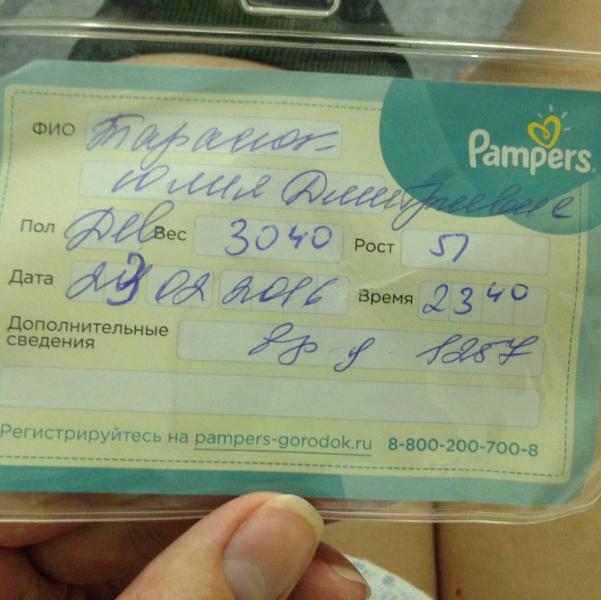 Pampers
ФИО Тарасюк
Юлия Дмитриевне
Пол Дев Вес 3040 Рост 51
Дата 02 2016 Время 23 40
Дополнительные
сведения 1257
Регистрируйтесь на pampers-gorodok.ru 8-800-200-700-8